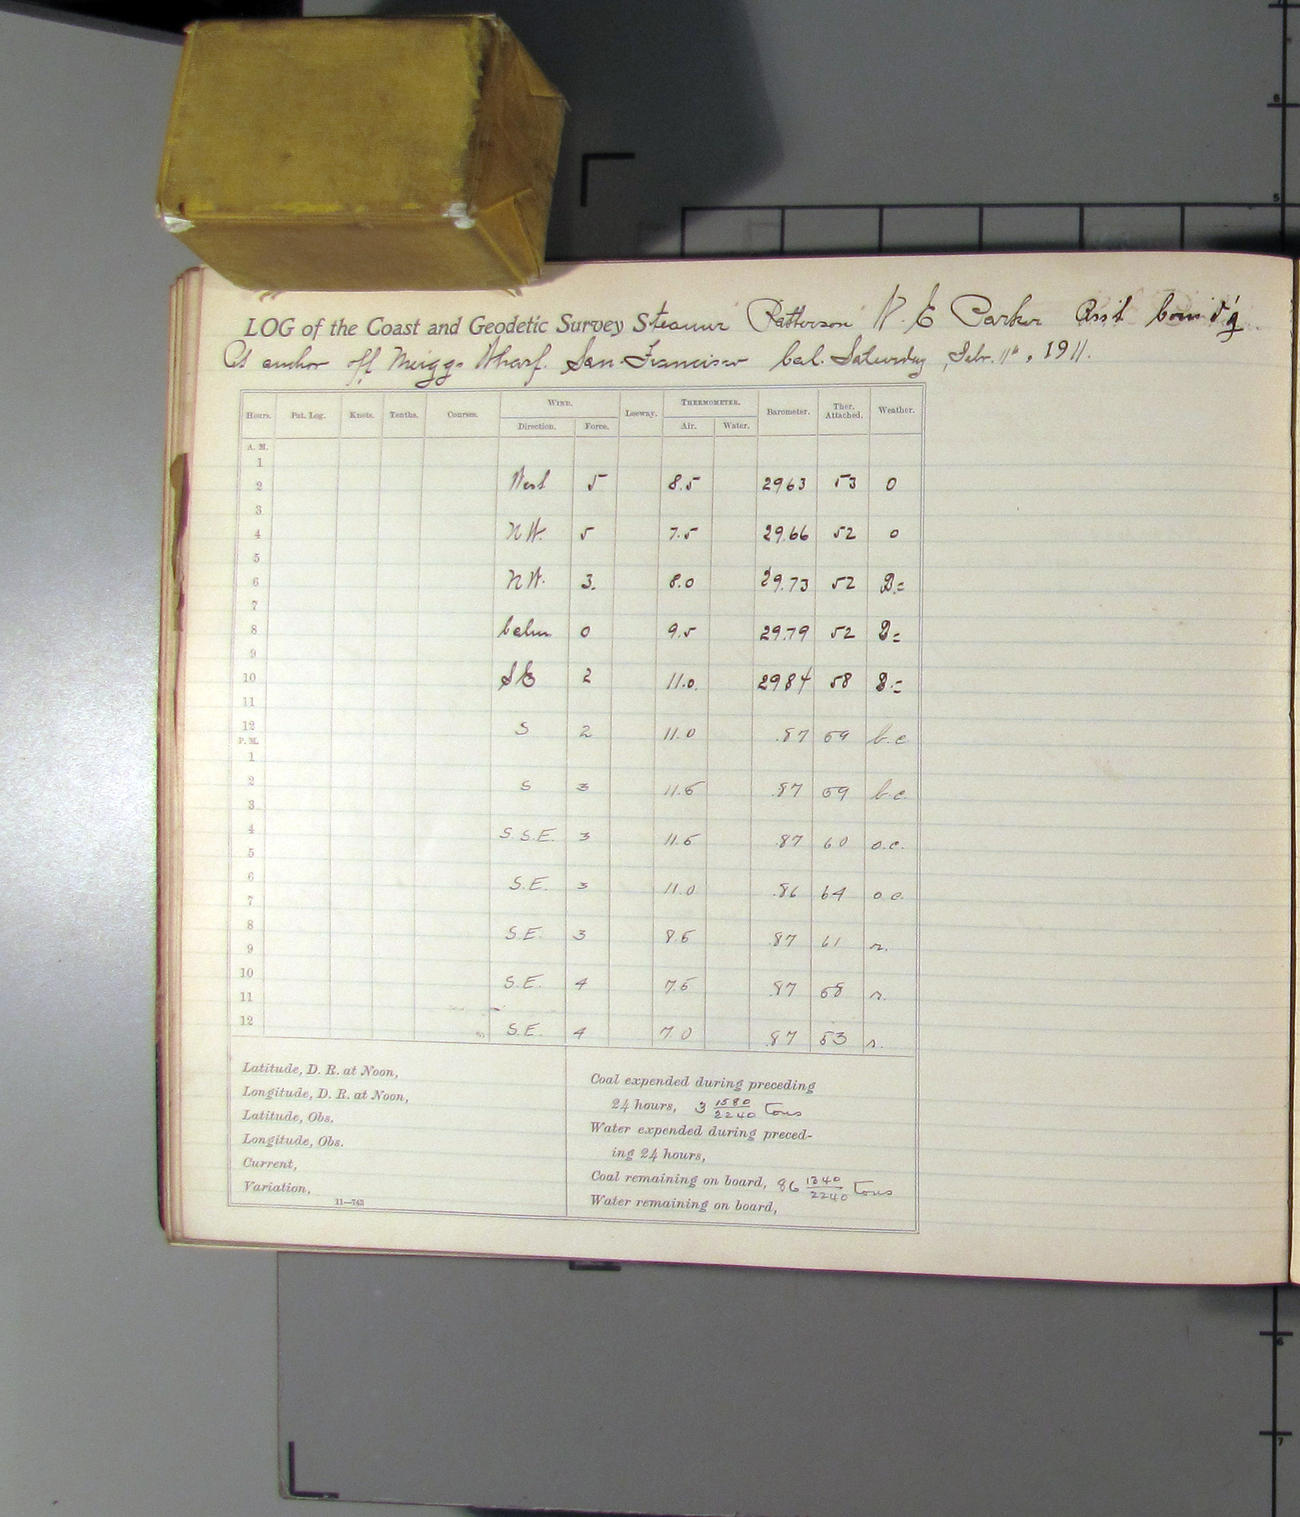 LOG of the Coast and Geodetic Survey Steamer "Patterson" W. E. Parker Ass't Com'd'g.
At anchor off Meiggs Wharf. San Francisco Cal. Saturday, Febr. 11th, 1911.
Hours. Pat. Log. Knots. Tenths. Courses. WIND. Leeway. THERMOMETER. Barometer. Ther. Attached. Weather.
Direction. Force. Air. Water.
A. M.
1
2 West 5 8.5 2963 53 0
3
4 NW. 5 7.5 29.66 52 0
5
6 NW. 3. 8.0 29.73 52 B.=
7
8 Calm 0 9.5 29.79 52 B=
9
10 SE 2 11.0. 2984 58 B.=
11
12 S 2 11.0 .87 59 b.c
P. M.
1
2 S 3 11.5 .87 59 b.c.
3
4 S.S.E. 3 11.5 .87 60 o.c.
5
6 S.E. 3 11.0 .86 64 o.c.
7
8 S.E. 3 8.5 .87 61 r.
9
10 S.E. 4 7.5 .87 58 r.
11
12 S.E. 4 7.0 .87 53 r.
Latitude, D. R. at Noon,
Longitude, D. R. at Noon,
Latitude, Obs.
Longitude, Obs.
Current,
Variation,
11—743
Coal expended during preceding
24 hours, 3 1580/2240 Tons
Water expended during preced-
ing 24 hours,
Coal remaining on board, 86 1340/2240 Tons
Water remaining on board,
6
5
6
7